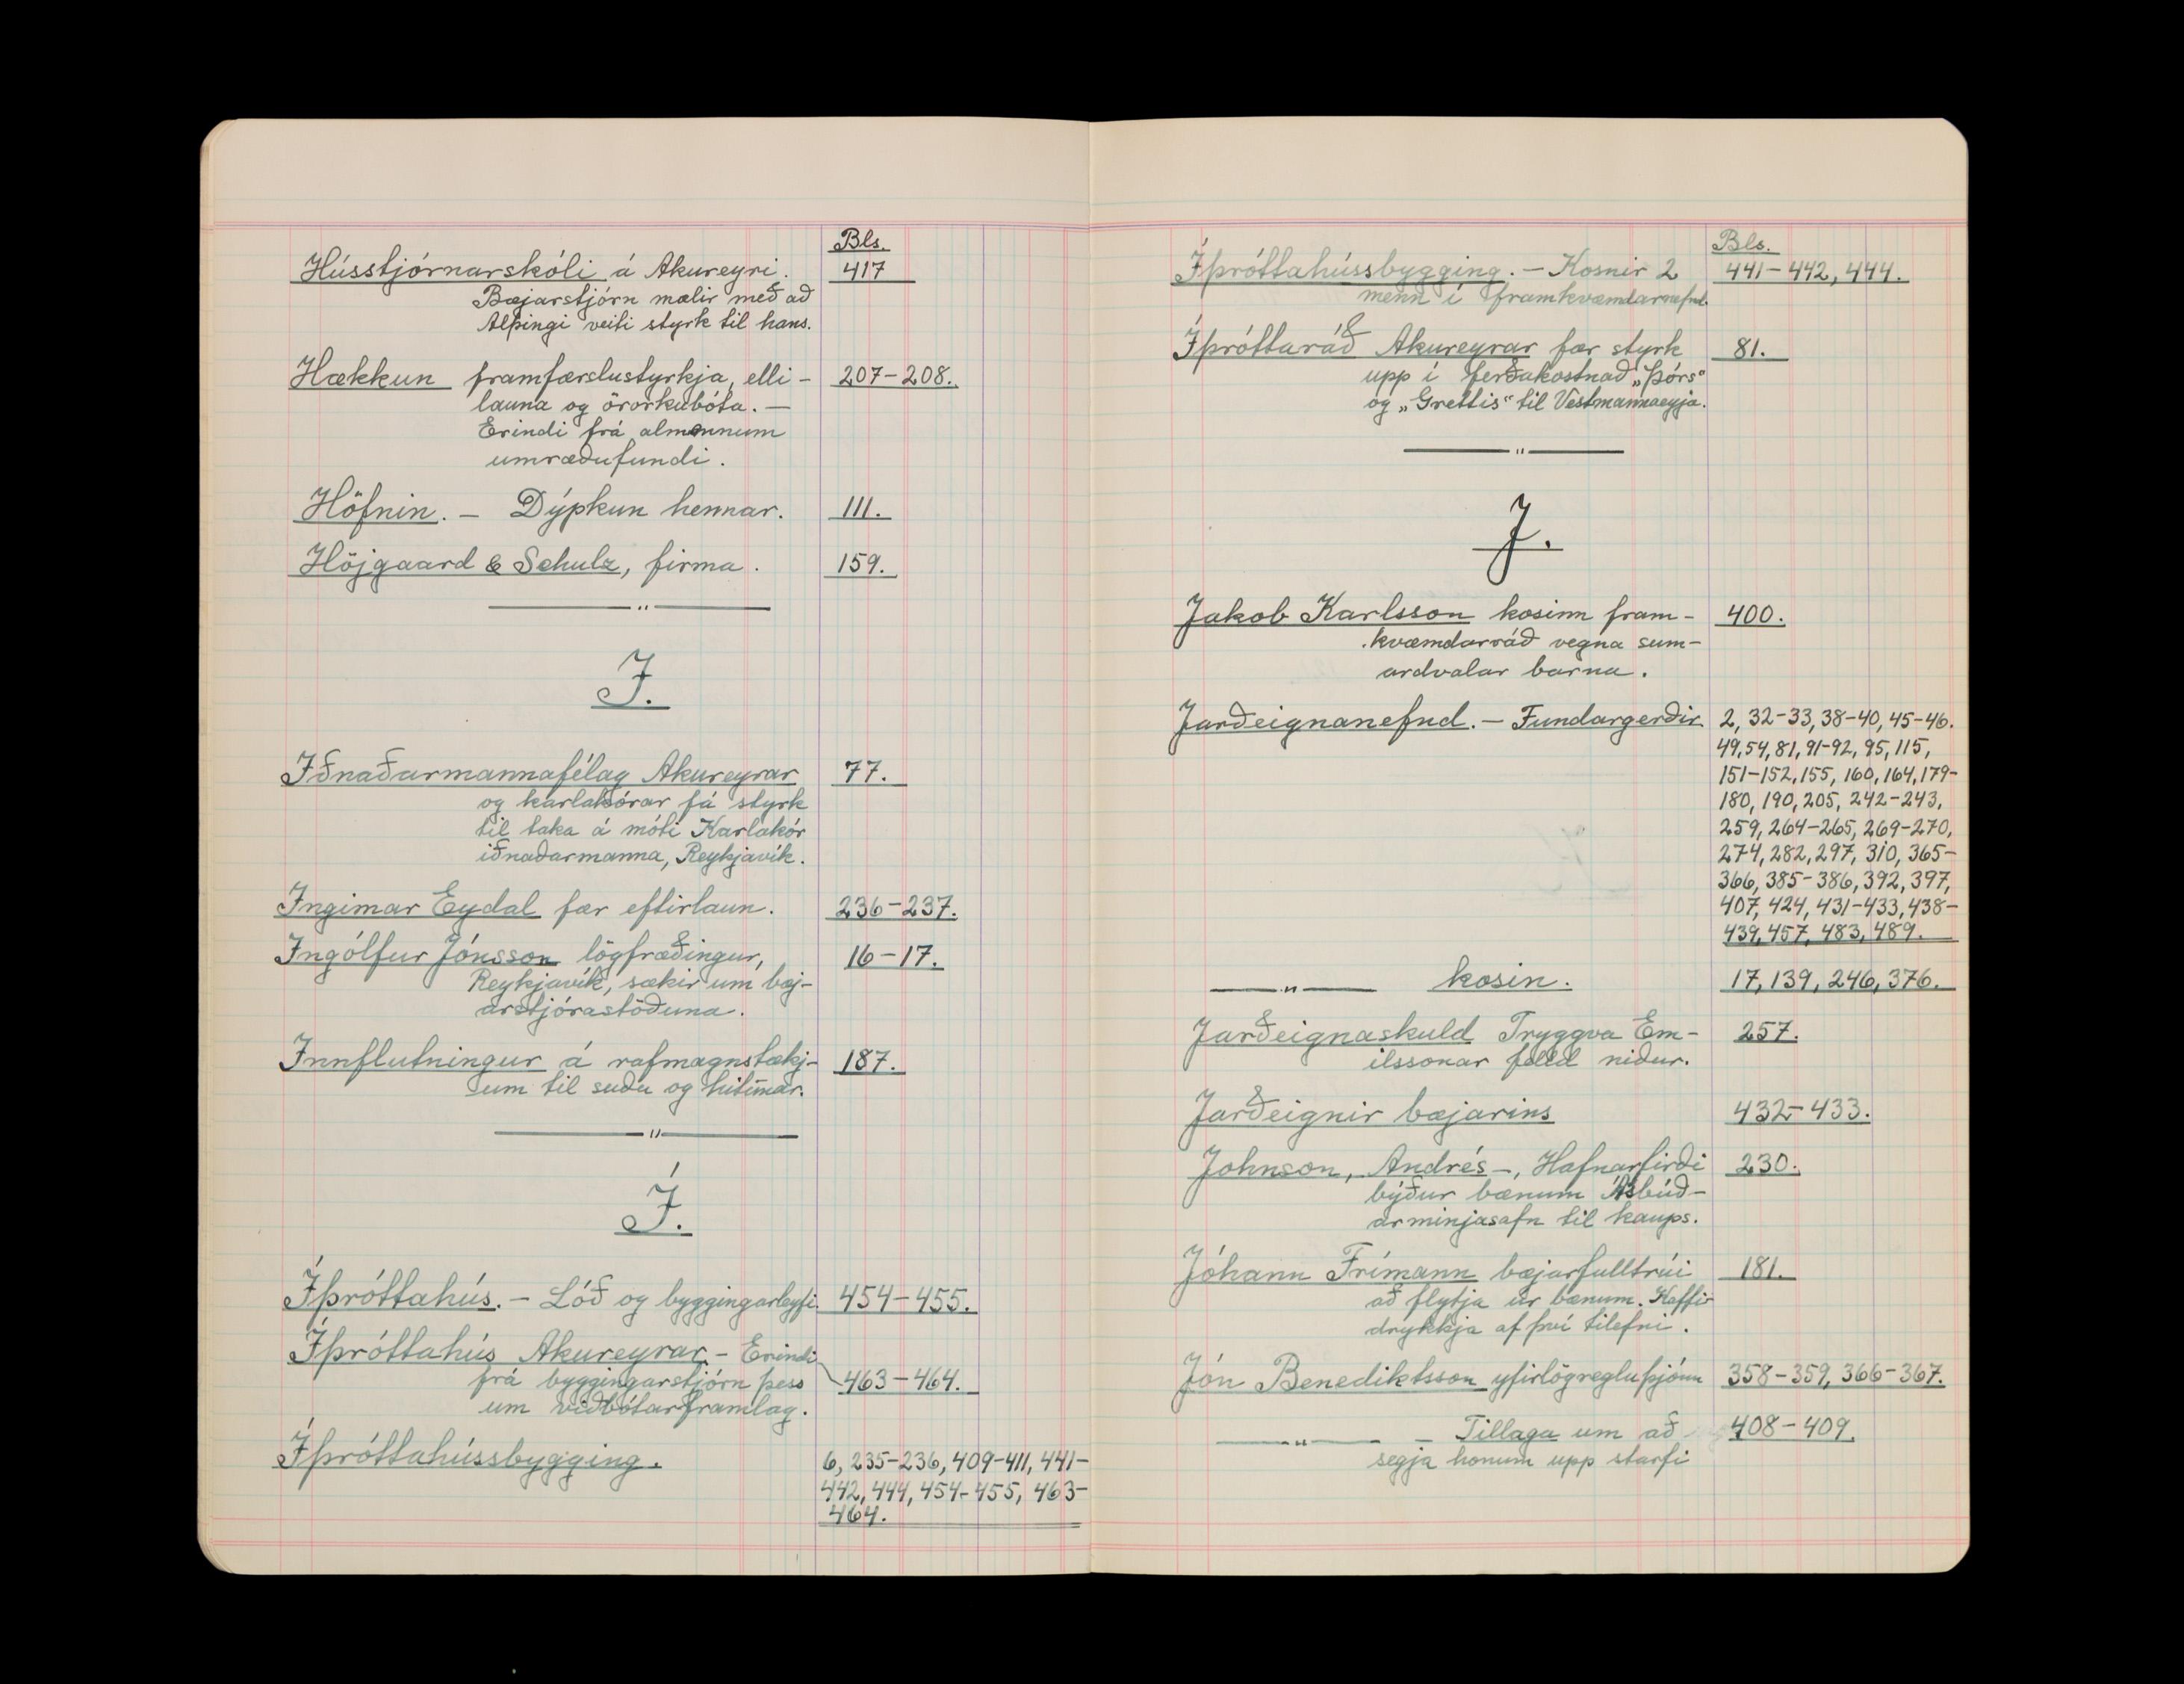 Bls.
Hússtjórnarskóli á Akureyri. 417
Bæjarstjórn mælir með að
Alþingi veiti styrk til hans.
Hækkun framfærslustyrkja, elli- 207-208.
launa og örorkubóta. -
Erindi frá almennum
umræðufundi.
Höfnin. - Dýpkun hennar. 111.
Höjgaard & Schulz, firma. 159.
I.
Iðnaðarmannafélag Akureyrar 77.
og karlakórar fá styrk
til taka á móti Karlakór
iðnaðarmanna, Reykjavík.
Ingimar Eydal fær eftirlaun. 236-237.
Ingólfur Jónsson lögfræðingur, 16-17.
Reykjavík, sækir um bæj-
arstjórastöðuna.
Innflutningur á rafmagnstækj- 187.
um til suðu og hitunar.
Í.
Íþróttahús. - Lóð og byggingarleyfi. 454-455.
Íþróttahús Akureyrar - Erindi
frá byggingarstjórn þess 463-464.
um viðbótarframlag.
Íþróttahússbygging. 6, 235-236, 409-411, 441-
442, 444, 454-455, 463-
464.
Bls.
Íþróttahússbygging. - Kosnir 2 441-442, 444.
menn í framkvæmdarnefnd.
Íþróttaráð Akureyrar fær styrk 81.
upp í ferðakostnað „Þórs"
og „Grettis" til Vestmannaeyja.
J.
Jakob Karlsson kosinn fram- 400.
kvæmdarráð vegna sum-
ardvalar barna.
Jarðeignanefnd. - Fundargerðir 2, 32-33, 38-40, 45-46.
49, 54, 81, 91-92, 95, 115,
151-152, 155, 160, 164, 179-
180, 190, 205, 242-243,
259, 264-265, 269-270,
274, 282, 297, 310, 365-
366, 385-386, 392, 397,
407, 424, 431-433, 438-
439, 457, 483, 489.
—"— kosin. 17, 139, 246, 376.
Jarðeignaskuld Tryggva Em- 257.
ilssonar felld niður.
Jarðeignir bæjarins 432-433.
Johnson, Andrés -, Hafnarfirði 230.
býður bænum Ásbúð-
arminjasafn til kaups.
Jóhann Frímann bæjarfulltrúi 181.
að flytja úr bænum. Kaffi-
drykkja af því tilefni.
Jón Benediktsson yfirlögregluþjónn 358-359, 366-367.
—"— - Tillaga um að 408-409.
segja honum upp starfi